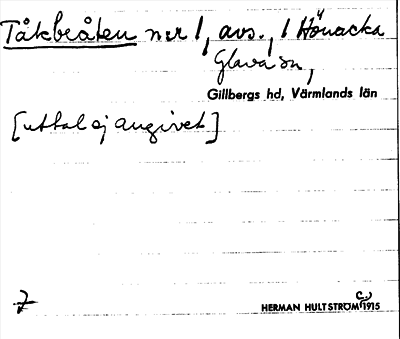 Tåkbråten nr 1, avs., i Hönacka
Glava sn,
Gillbergs hd, Värmlands län
[uttal ej angivet]
7
HERMAN HULTSTRÖM 1915